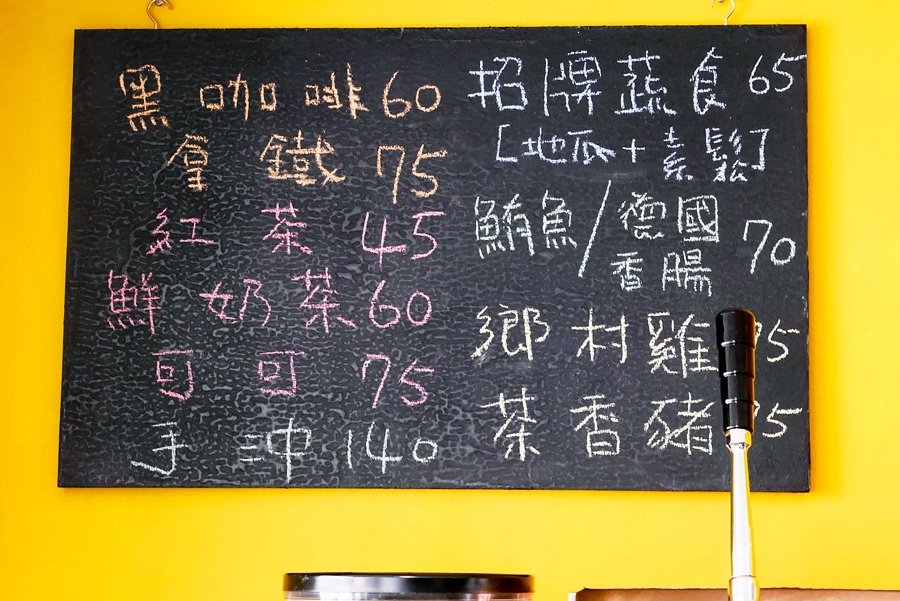 黑咖啡 60
拿鐵 75
紅茶 45
鮮奶茶 60
可可 75
手沖 140
招牌蔬食 65
[地瓜+素鬆]
鮪魚/德國香腸 70
鄉村雞 5
茶香豬 5